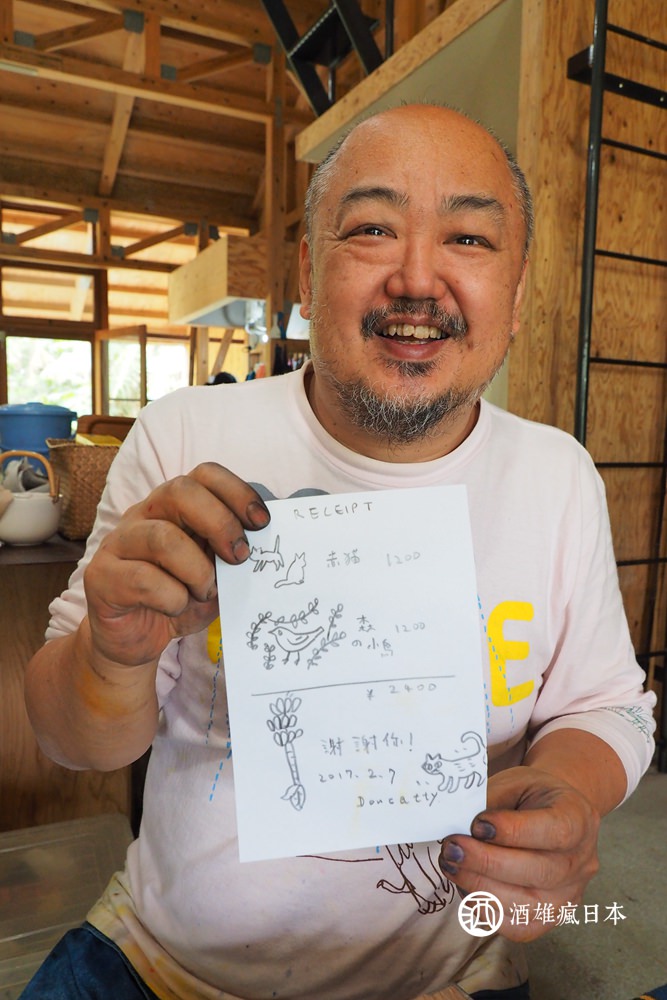 RECEIPT
赤猫 1200
森の小鳥 1200
¥ 2400
謝謝你!
2017.2.7
Doucatty
E
酒雄瘋日本